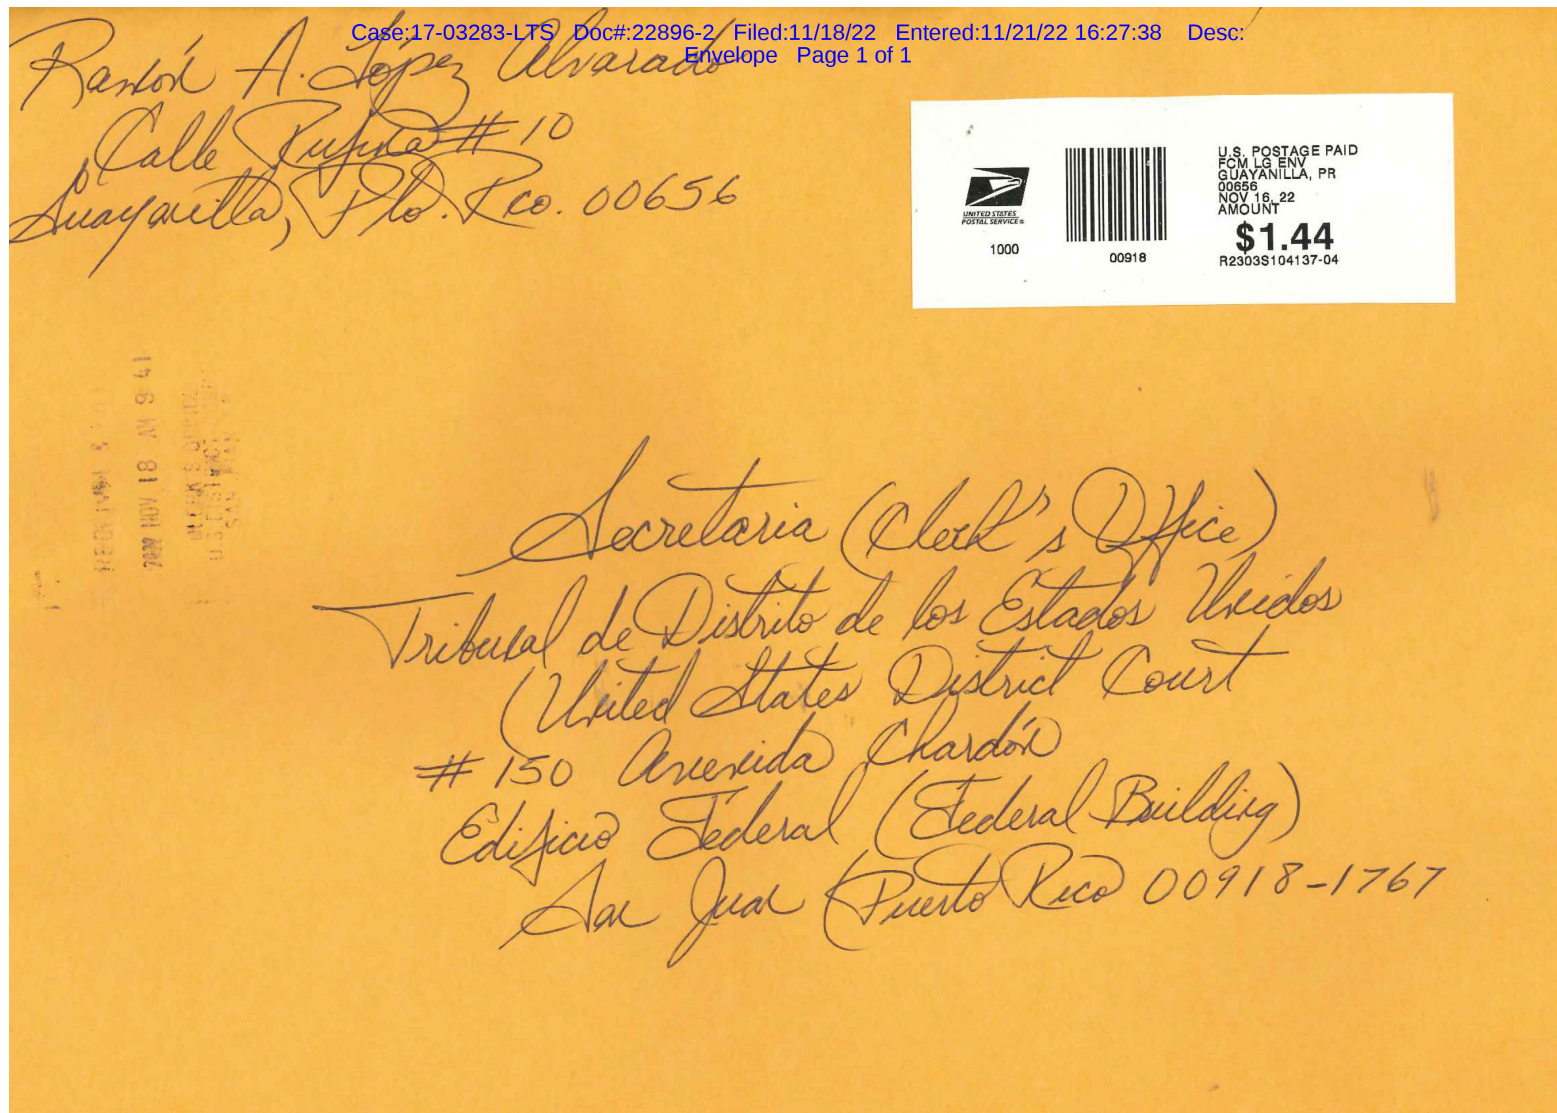 Case:17-03283-LTS Doc#:22896-2 Filed:11/18/22 Entered:11/21/22 16:27:38 Desc:
Envelope Page 1 of 1
Ramón A. López Alvarado
Calle Rufina # 10
Guayanilla, Pto. Rco. 00656
UNITED STATES
POSTAL SERVICE®
1000
00918
U.S. POSTAGE PAID
FCM LG ENV
GUAYANILLA, PR
00656
NOV 16, 22
AMOUNT
$1.44
R2303S104137-04
NOV 18 AM 9:41
Secretaria (Clerk's Office)
Tribunal de Distrito de los Estados Unidos
(United States District Court
# 150 Avenida Chardón
Edificio Federal (Federal Building)
San Juan (Puerto Rico 00918-1767